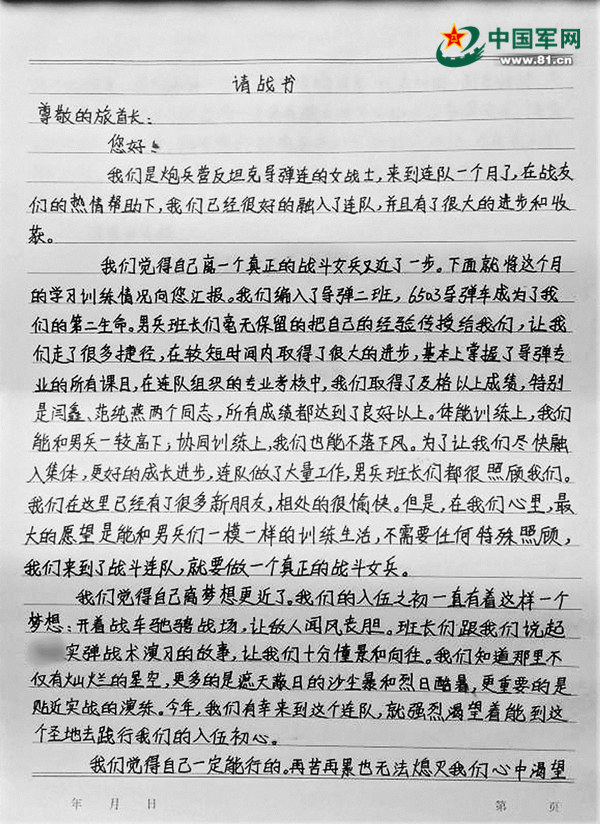 中国军网
www.81.cn
请战书
尊敬的旅首长：
您好！
我们是炮兵营反坦克导弹连的女战士，来到连队一个月了，在战友
们的热情帮助下，我们已经很好的融入了连队，并且有了很大的进步和收
获。
我们觉得自己离一个真正的战斗女兵又近了一步。下面就将这个月
的学习训练情况向您汇报。我们编入了导弹二班，6503导弹车成为了我
们的第二生命。男兵班长们毫无保留的把自己的经验传授给我们，让我
们走了很多捷径，在较短时间内取得了很大的进步，基本上掌握了导弹专
业的所有课目，在连队组织的专业考核中，我们取得了及格以上成绩，特别
是闫鑫、范纯燕两个同志，所有成绩都达到了良好以上。体能训练上，我们
能和男兵一较高下；协同训练上，我们也能不落下风。为了让我们尽快融
入集体，更好的成长进步，连队做了大量工作，男兵班长们都很照顾我们。
我们在这里已经有了很多新朋友，相处的很愉快。但是，在我们心里，最
大的愿望是能和男兵们一模一样的训练生活，不需要任何特殊照顾，
我们来到了战斗连队，就要做一个真正的战斗女兵。
我们觉得自己离梦想更近了。我们的入伍之初一直有着这样一个
梦想：开着战车驰骋战场，让敌人闻风丧胆。班长们跟我们说起
实弹战术演习的故事，让我们十分憧憬和向往。我们知道那里不
仅有灿烂的星空，更多的是遮天蔽日的沙尘暴和烈日酷暑，更重要的是
贴近实战的演练。今年，我们有幸来到这个连队，就强烈渴望着能到这
个圣地去践行我们的入伍初心。
我们觉得自己一定能行的。再苦再累也无法熄灭我们心中渴望
年 月 日
第 页